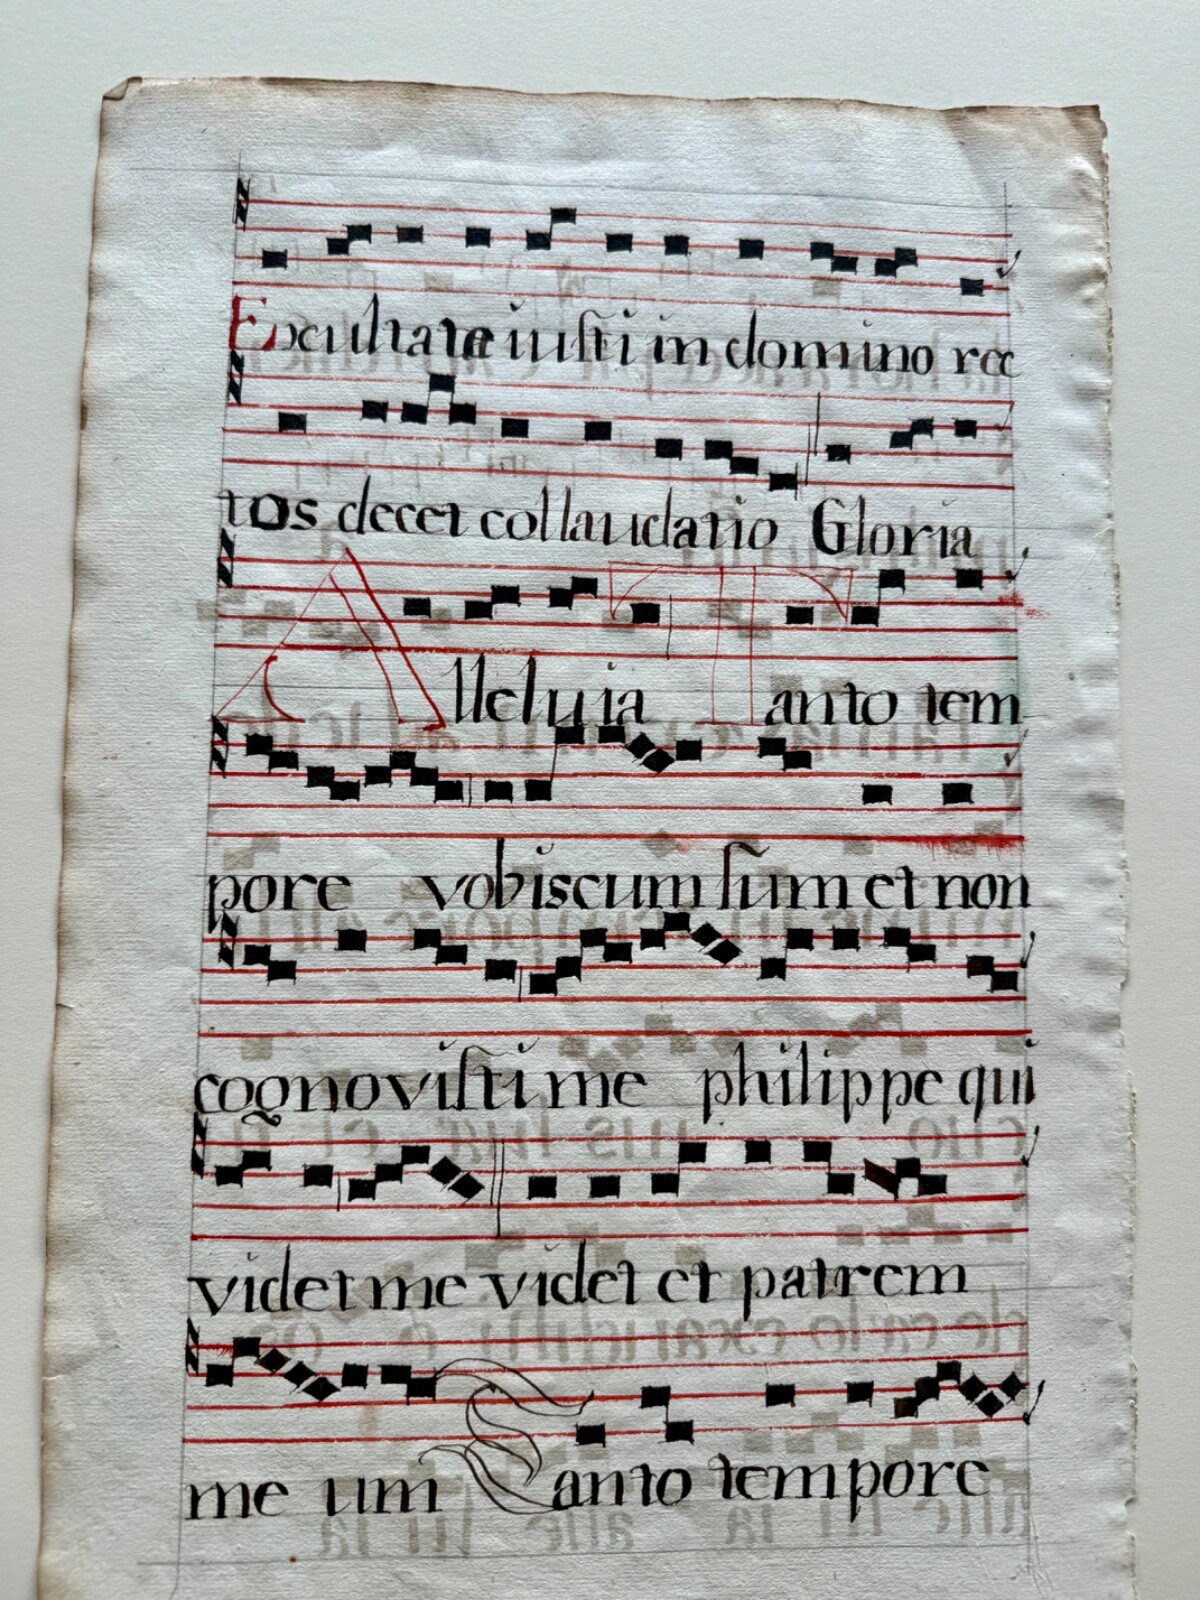 Exultate iusti in domino rec
tos decet collaudatio Gloria
Alleluia Tanto tem
pore vobiscum sum et non
cognovisti me philippe qui
videt me videt et patrem
me um Tanto tempore